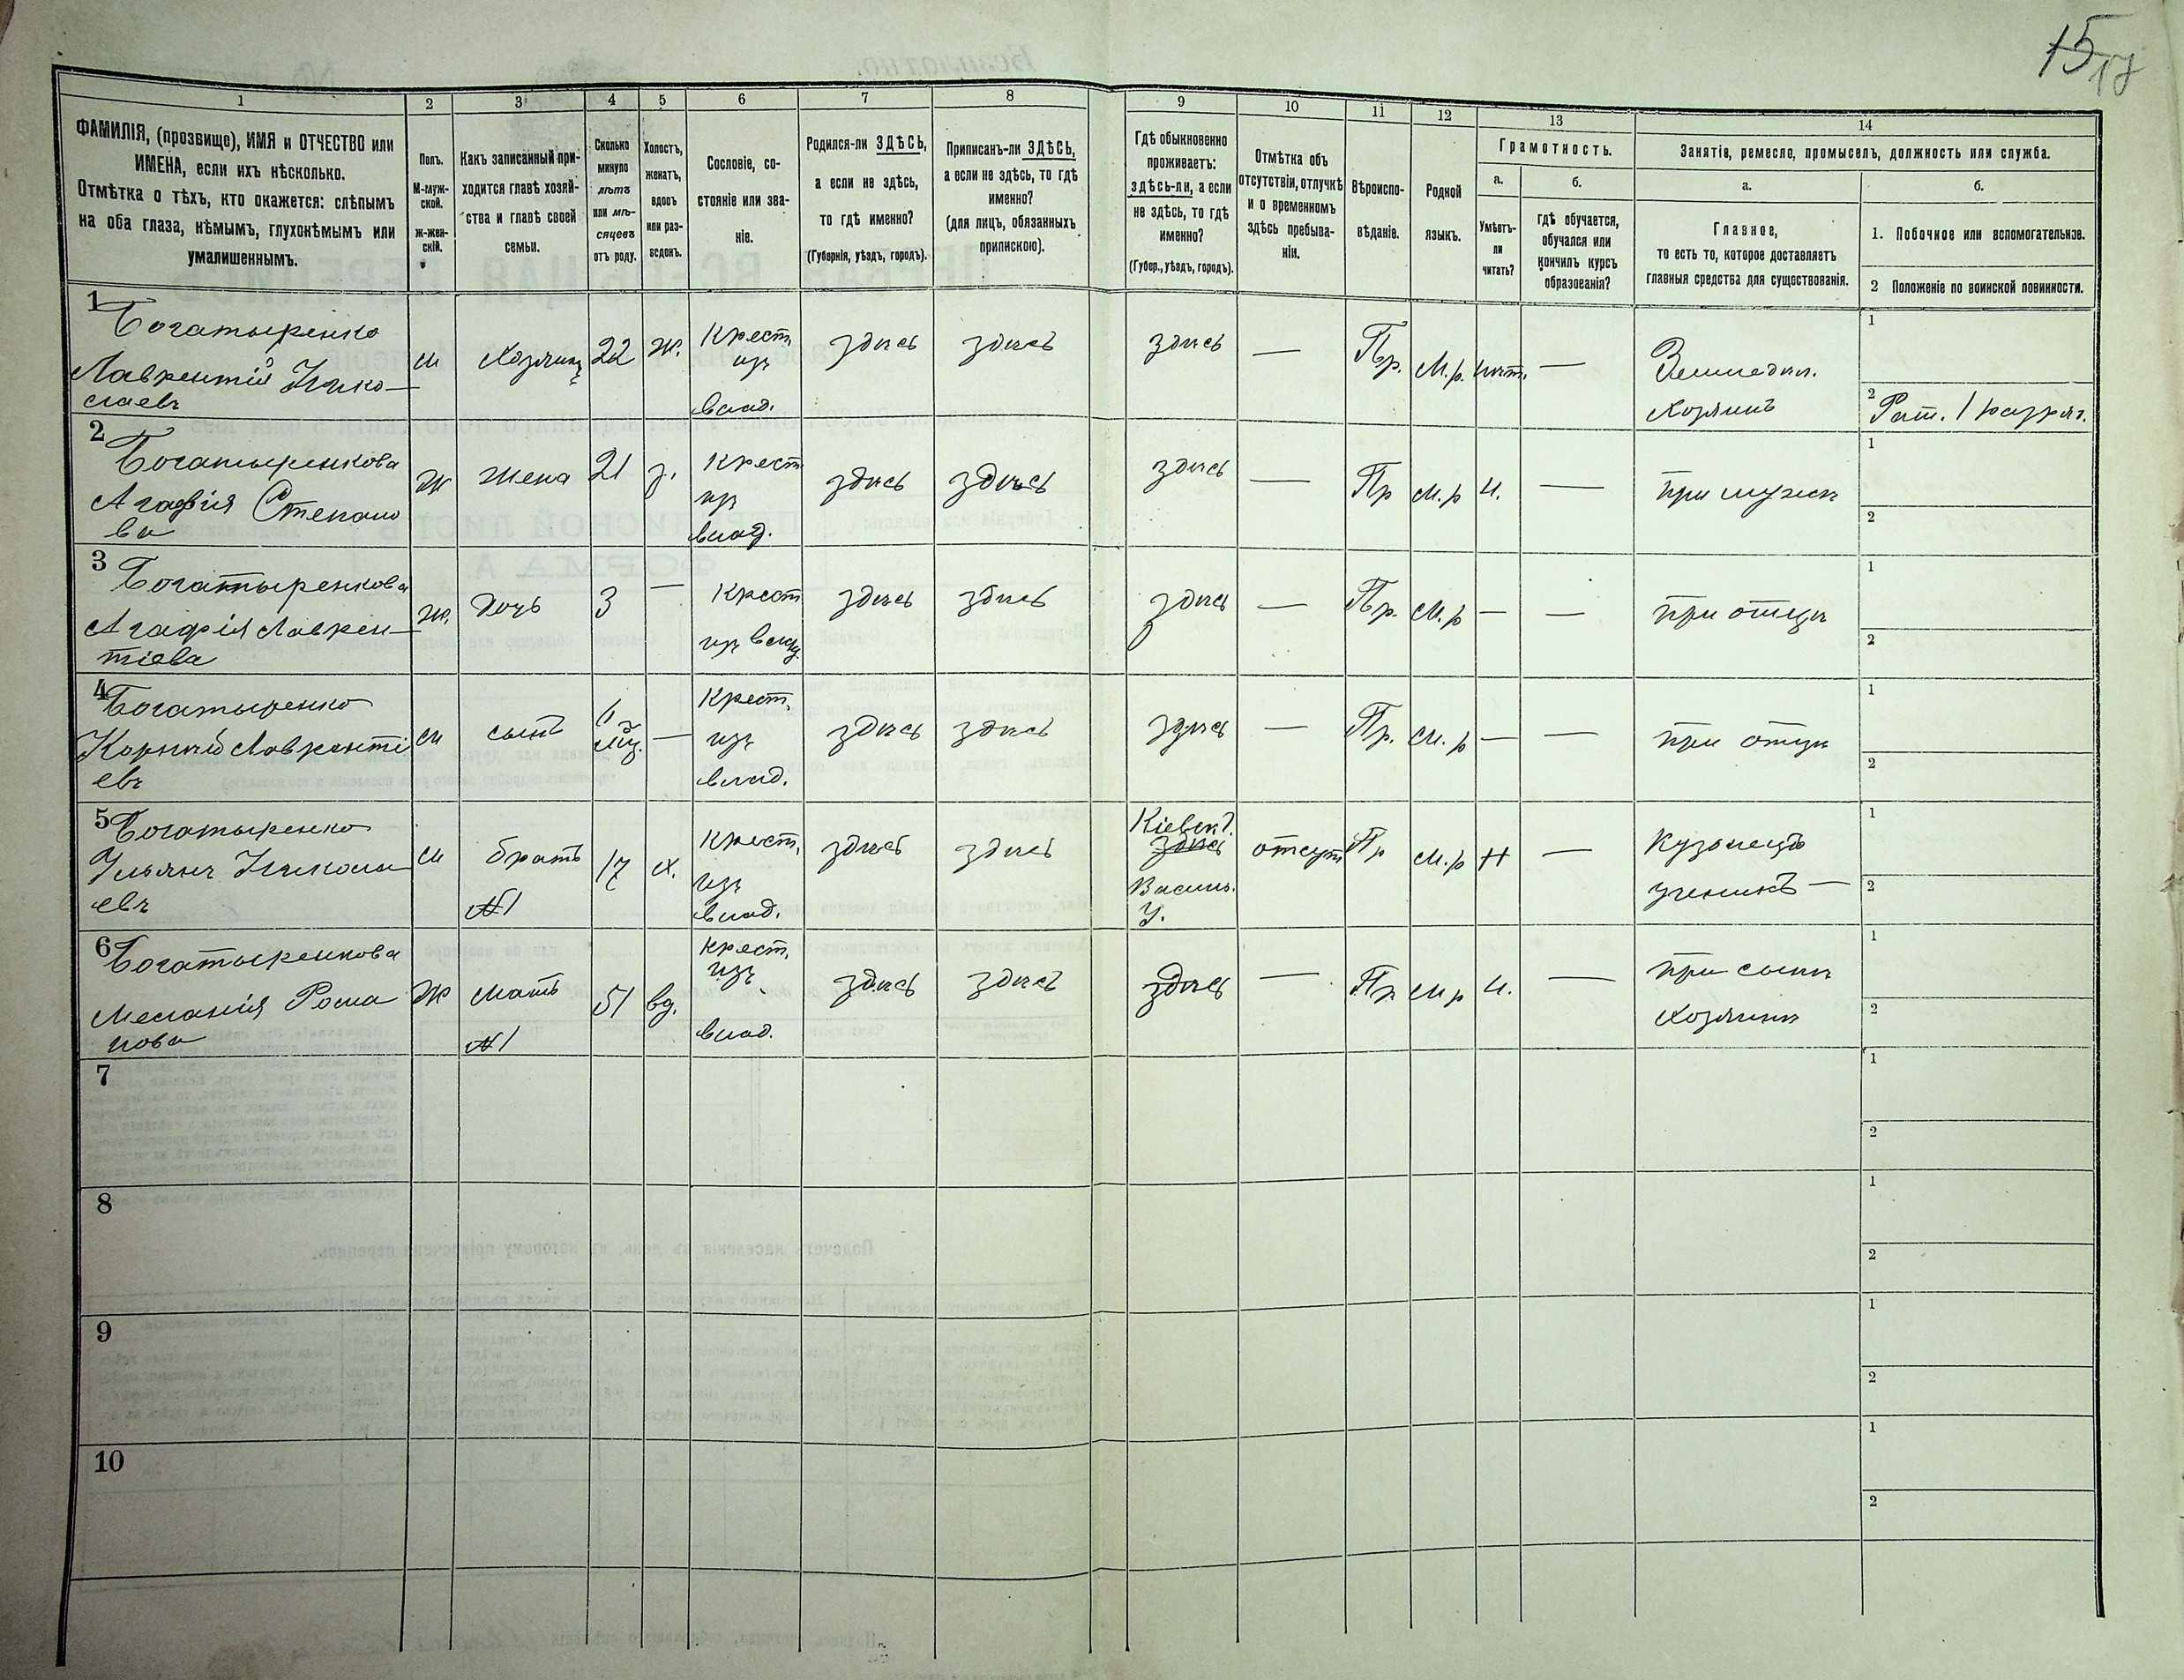 15
17
1
2
3
4
5
6
7
8
9
10
11
12
13
14
ФАМИЛІЯ, (прозвище), ИМЯ и ОТЧЕСТВО или
ИМЕНА, если ихъ нѣсколько.
Отмѣтка о тѣхъ, кто окажется: слѣпымъ
на оба глаза, нѣмымъ, глухонѣмымъ или
умалишеннымъ.
Полъ.
М-муж-
ской.
ж-жен-
скій.
Какъ записанный при-
ходится главѣ хозяй-
ства и главѣ своей
семьи.
Сколько
минуло
лѣтъ
или мѣ-
сяцевъ
отъ роду.
Холостъ,
женатъ,
вдовъ
или раз-
веденъ.
Сословіе, со-
стояніе или зва-
ніе.
Родился-ли ЗДѢСЬ,
а если не здѣсь,
то гдѣ именно?
(Губернія, уѣздъ, городъ).
Приписанъ-ли ЗДѢСЬ,
а если не здѣсь, то гдѣ
именно?
(для лицъ, обязанныхъ
припискою).
Гдѣ обыкновенно
проживаетъ:
здѣсь-ли, а если
не здѣсь, то гдѣ
именно?
(Губер., уѣздъ, городъ).
Отмѣтка объ
отсутствіи, отлучкѣ
и о временномъ
здѣсь пребыва-
ніи.
Вѣроиспо-
вѣданіе.
Родной
языкъ.
Грамотность.
а.
Умѣетъ-
ли
читать?
б.
гдѣ обучается,
обучался или
кончилъ курсъ
образованія?
Занятіе, ремесло, промыселъ, должность или служба.
а.
Главное,
то есть то, которое доставляетъ
главныя средства для существованія.
б.
1. Побочное или вспомогательное.
2 Положеніе по воинской повинности.
1
Богатыренко
Лаврентій Нико-
лаевъ
м
Хозяинъ
22
ж.
Крест.
изъ
влад.
здѣсь
здѣсь
здѣсь
—
Пр.
М.р.
нѣт.
—
Земледѣл.
Хозяинъ
1
2
Рат. 1 разряд.
2
Богатыренкова
Агафія Степано
ва
ж
жена
21
з.
Крест
изъ
влад.
здѣсь
здѣсь
здѣсь
—
Пр
М.р
н.
—
при мужѣ
1
2
3
Богатыренкова
Агафія Лаврен-
тіева
ж.
дочь
3
—
Крест
изъ влад
здѣсь
здѣсь
здѣсь
—
Пр.
М.р
—
—
при отцѣ
1
2
4
Богатыренко
Корній Лавренті
евъ
м
сынъ
мѣс.
—
Крест.
изъ
влад.
здѣсь
здѣсь
здѣсь
—
Пр.
М.р
—
—
при отцѣ
1
2
5
Богатыренко
Ульянъ Никола
евъ
м
братъ
№1
17
х.
Крест.
изъ
влад.
здѣсь
здѣсь
Кіевск.
здѣсь
Васил.
у.
отсут
Пр
М.р
н
—
Кузнецъ
ученикъ —
1
2
6
Богатыренкова
Меланія Рома
нова
ж
мать
№1
51
вд.
Крест.
изъ
влад.
здѣсь
здѣсь
здѣсь
—
Пр
М р
н.
—
при сынѣ
хозяинѣ
1
2
7
1
2
8
1
2
9
1
2
10
1
2